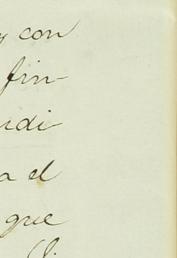 y con
fin-
udi
a el
que